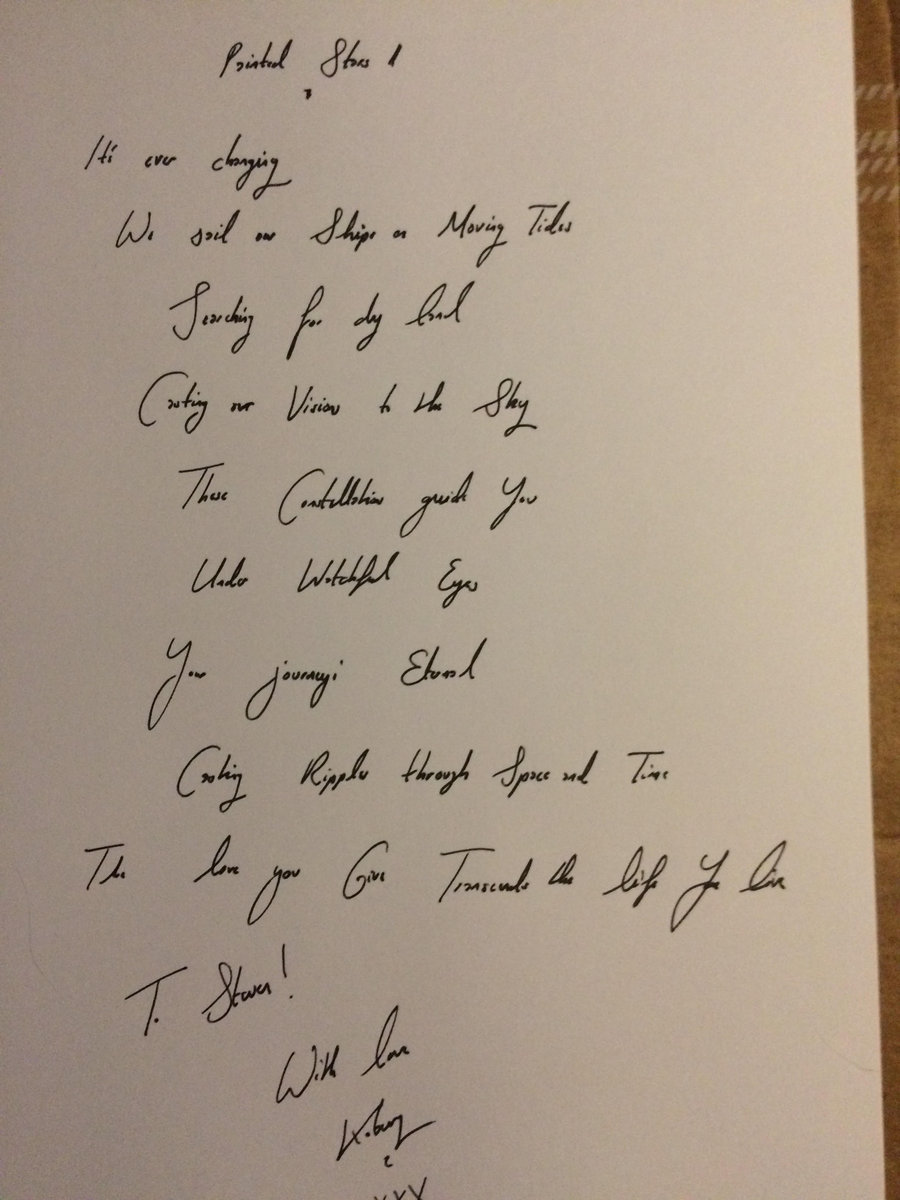 Painted Stars II
It's ever changing
We sail our Ships on Moving Tides
Searching for dry land
Casting our Vision to the Sky
These Constellation guide You
Under Watchful Eyes
Your journeys Eternal
Casting Ripples through Space and Time
The love you Give Transcends the life You live
To Steven!
With love
xxx